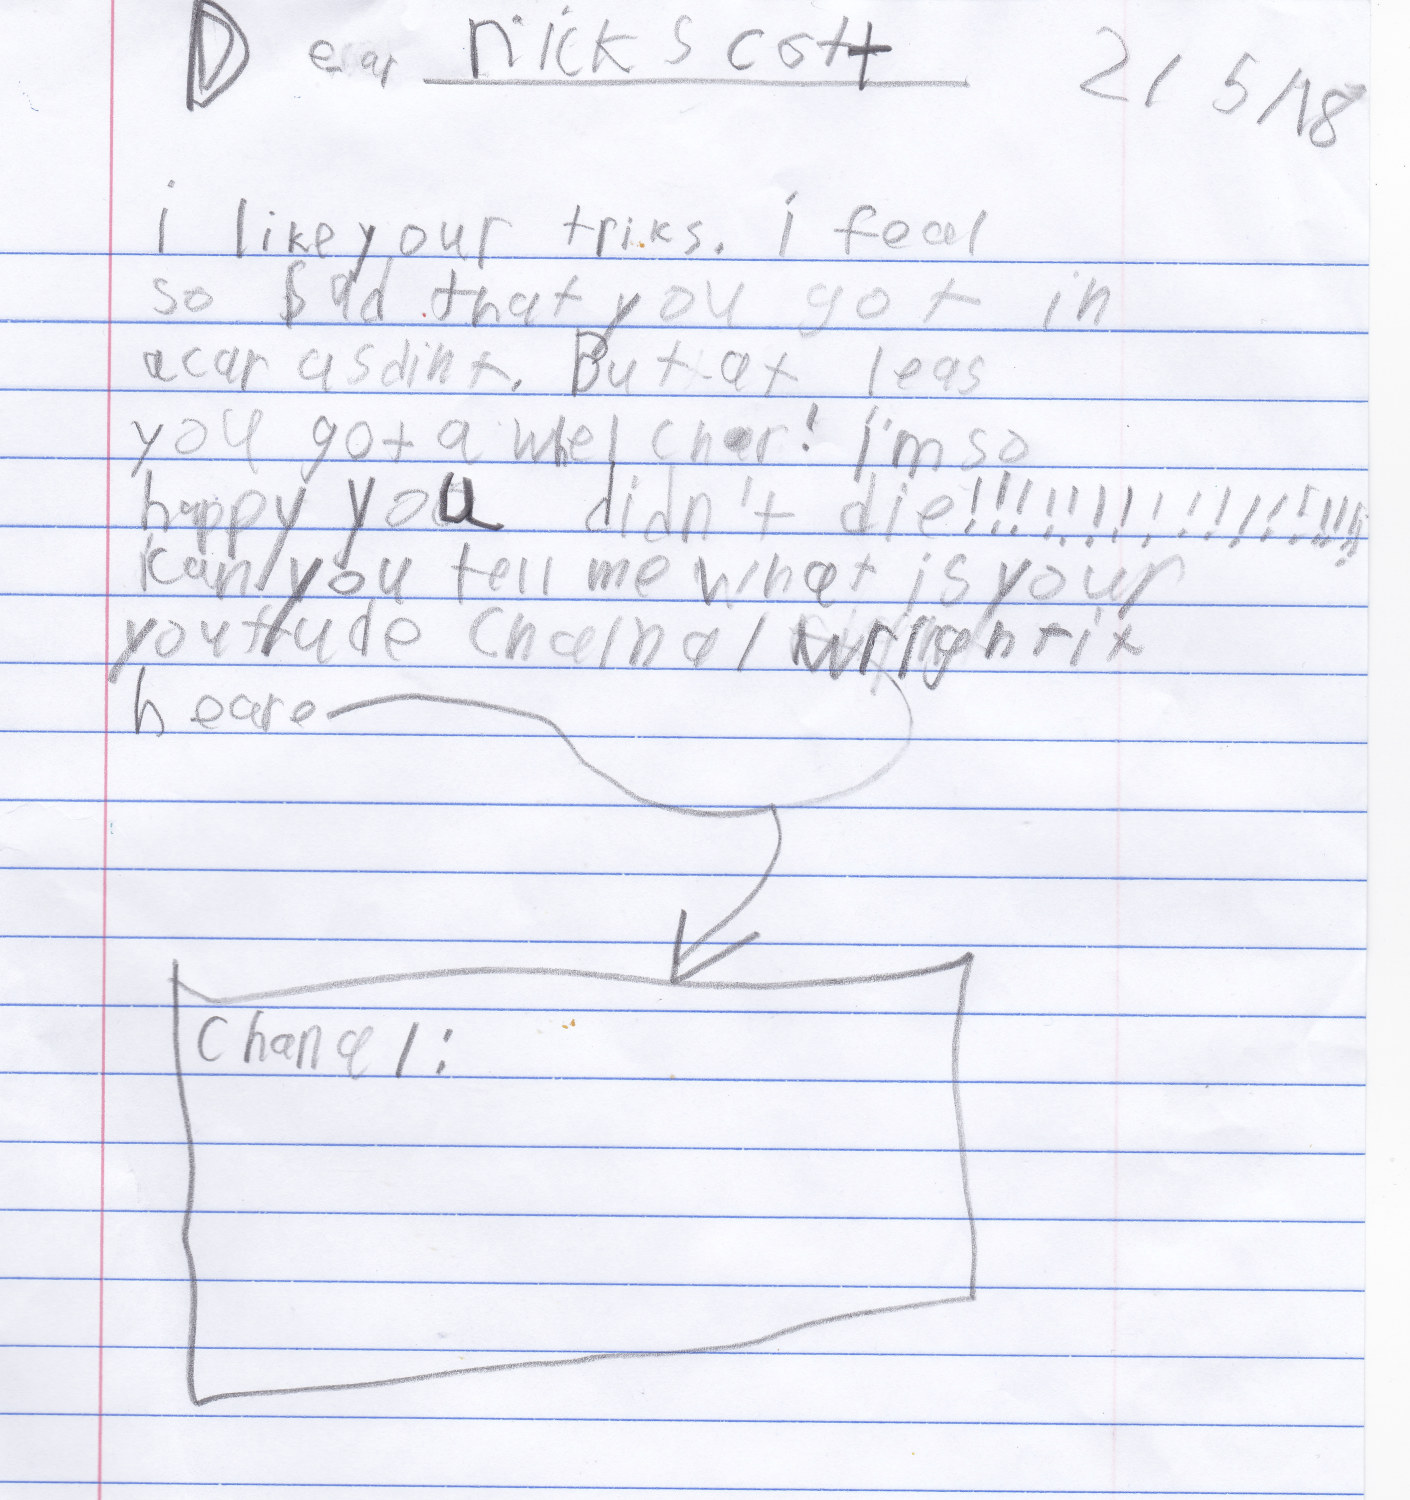 Dear nick scott 21 5/18
i like your triks. i feal
so sad that you got in
a car asdint. But at leas
you got a whel char! I'm so
happy you didn't die!!!!!!!!!!!!!!!!!!
kan you tell me what is your
youtude Chalnal wright it
heare
Chanal: